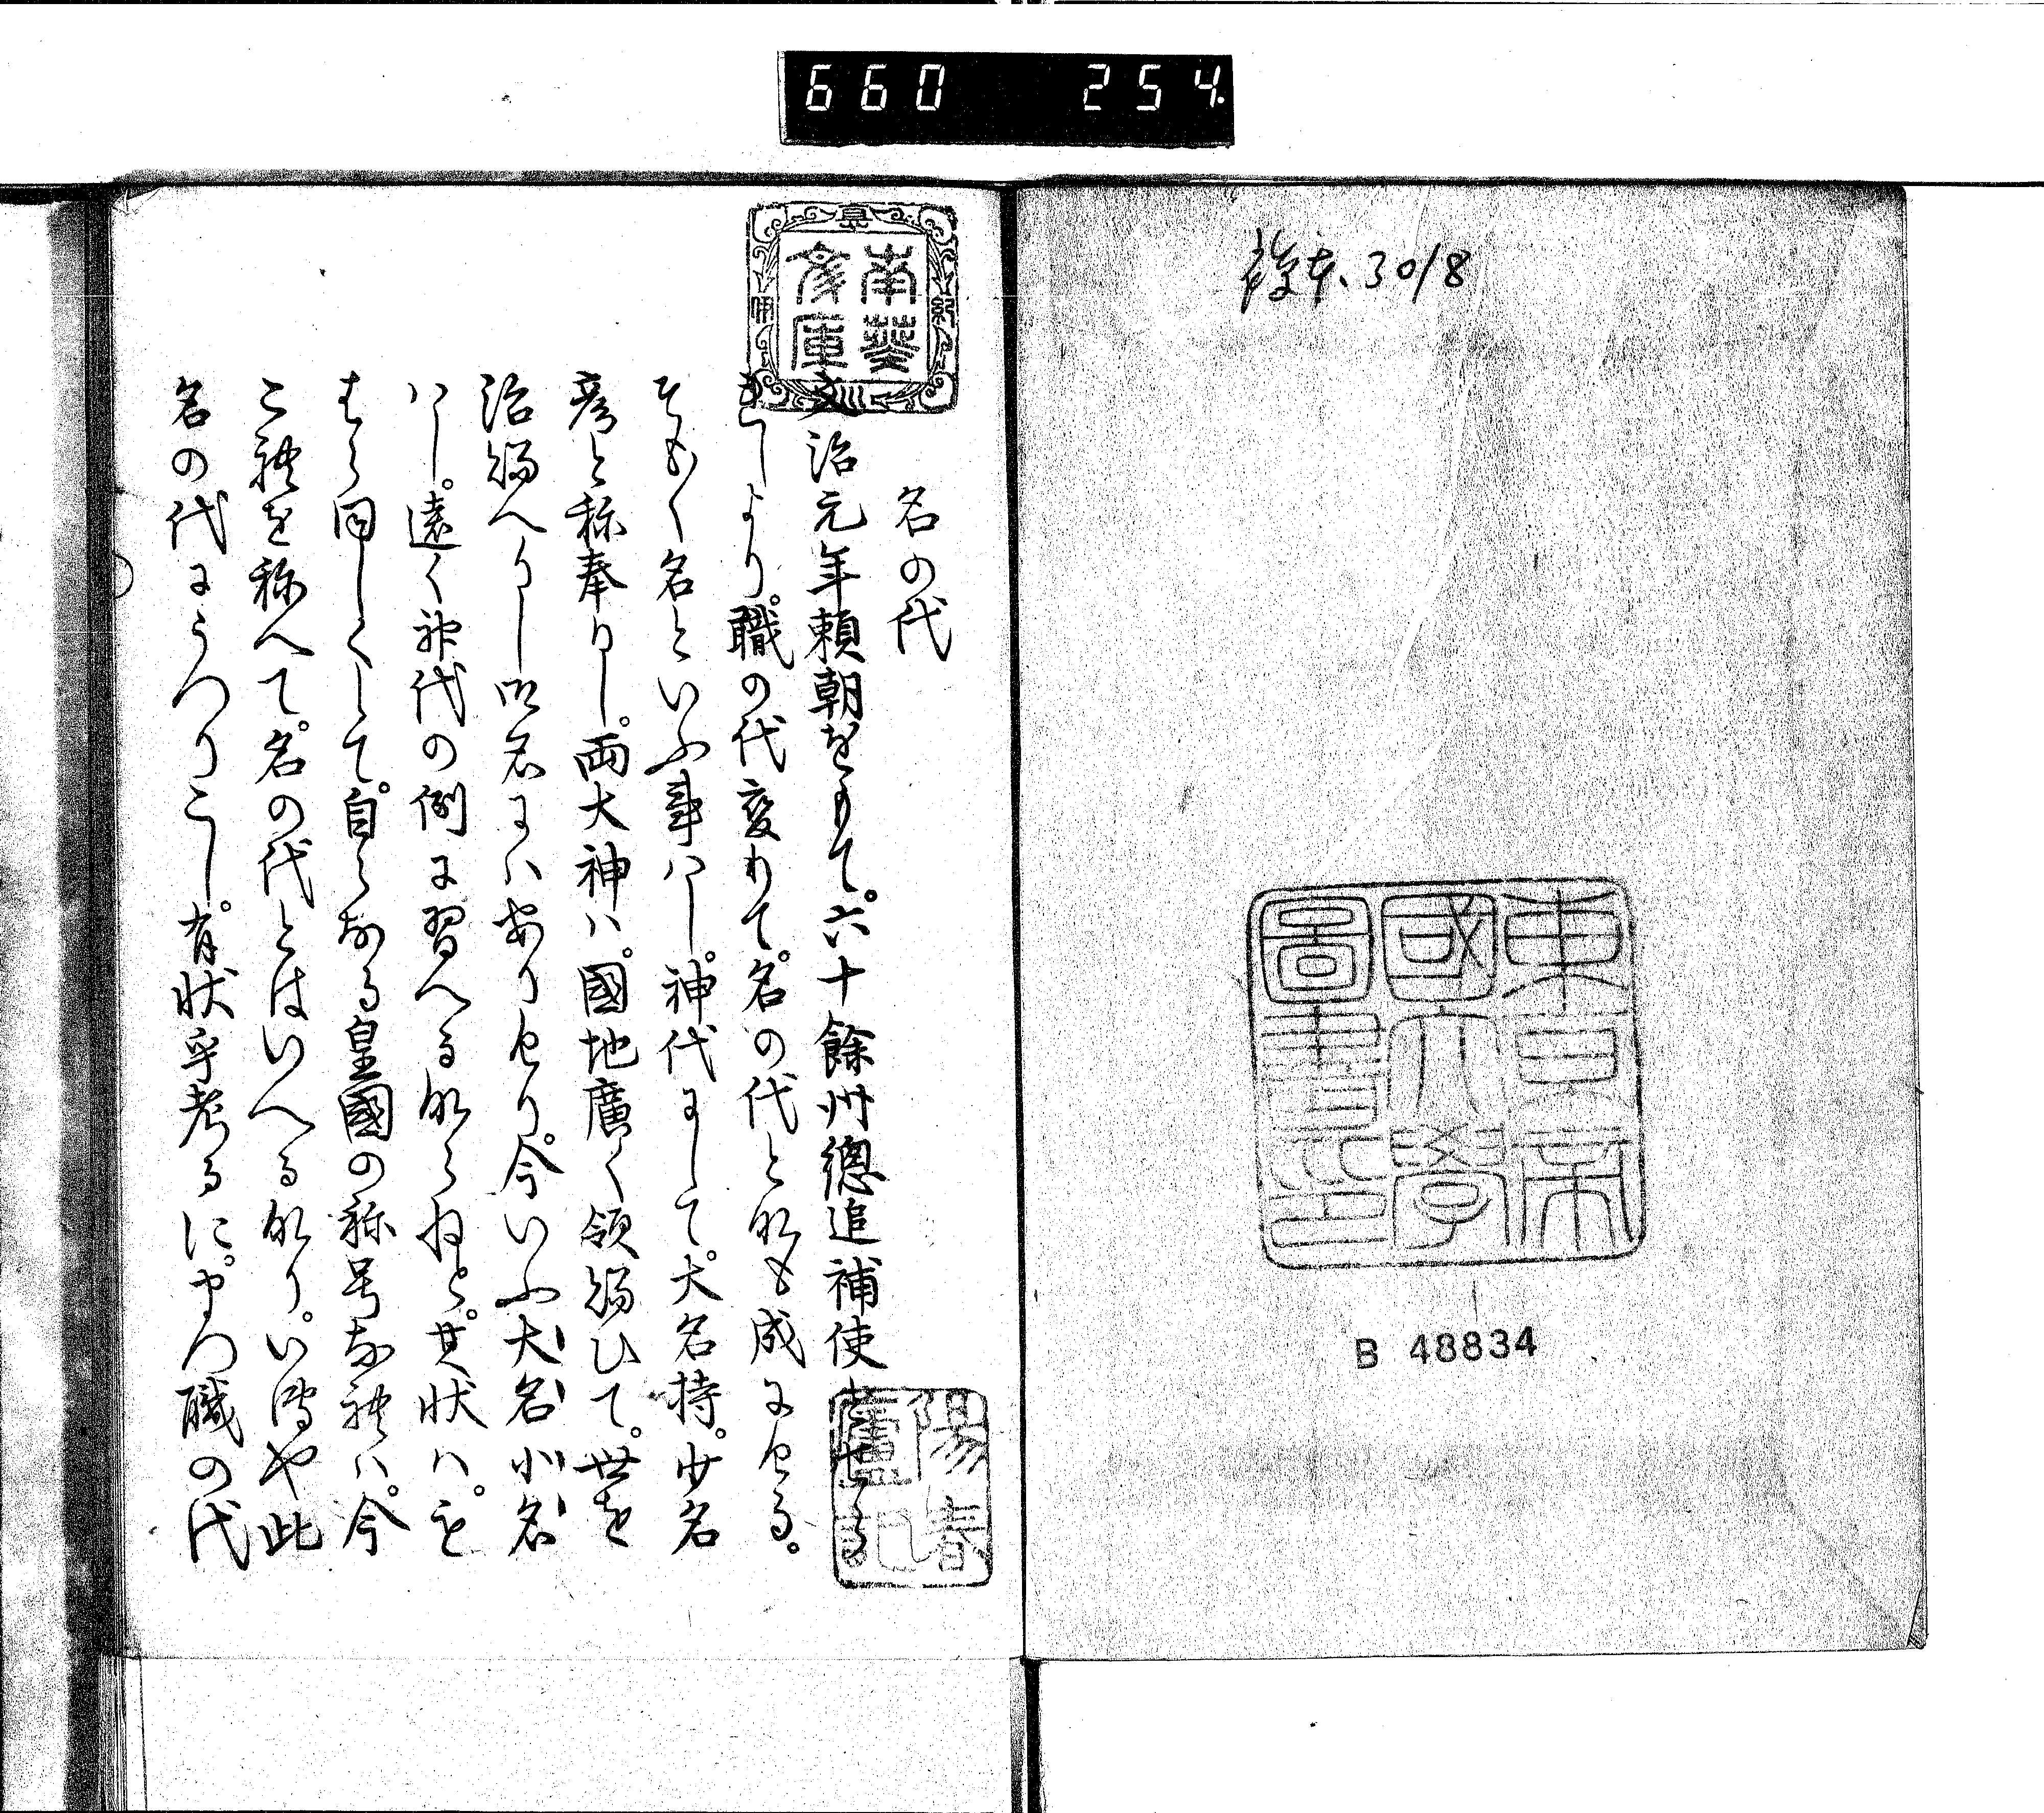 660 254.
複本. 3018
東京帝
國大學
圖書印
B 48834
南葵
文庫
陽春
廬記
名の代
文治元年頼朝をもて。六十餘州總追補使とせる
より。職の代変りて。名の代と那も成にける。
そも〱名といふ事ハし。神代にして。大名持。少名
彦と称奉りし。両大神ハ。國地廣く領給ひて。世を
治給へりし御名にハありけり。今いふ大名小名
ハし。遠く神代の例に習へる那らねと。其状ハ。を
はら同しくして。自らなる皇國の称号なれハ。今
これを称へて。名の代とはいへる那り。いてや此
名の代にうつりこし。有状乎考るに。まつ職の代